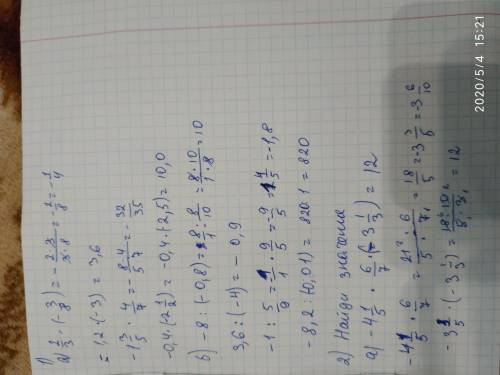 1)
a) 2/3 · (-3/8) = - 2·3/3·8 = -2/8 = -1/4
= 1,2·(-3) = 3,6
-1 3/5 · 4/7 = - 8·4/5·7 = - 32/35
-0,4·(2 1/2) = -0,4·(2,5) = 10,0
б) -8:(-0,8) = 8/1 : 8/10 = 8·10/1·8 = 10
3,6:(-4) = -0,9
-1 : 5/9 = 1/1 · 9/5 = -9/5 = 1 4/5 = -1,8
-8,2:(0,01) = 820:1 = 820
2) Найди значения
a) -4 1/5 · 6/7 · (-3 1/3) = 12
-4 1/5 · 6/7 = 21·6/5·7 = 18/5 = -3 3/5 = -3 6/10
-3 3/5 · (-3 1/3) = 18·10/5·3 = 12
2020/5/4 15:21